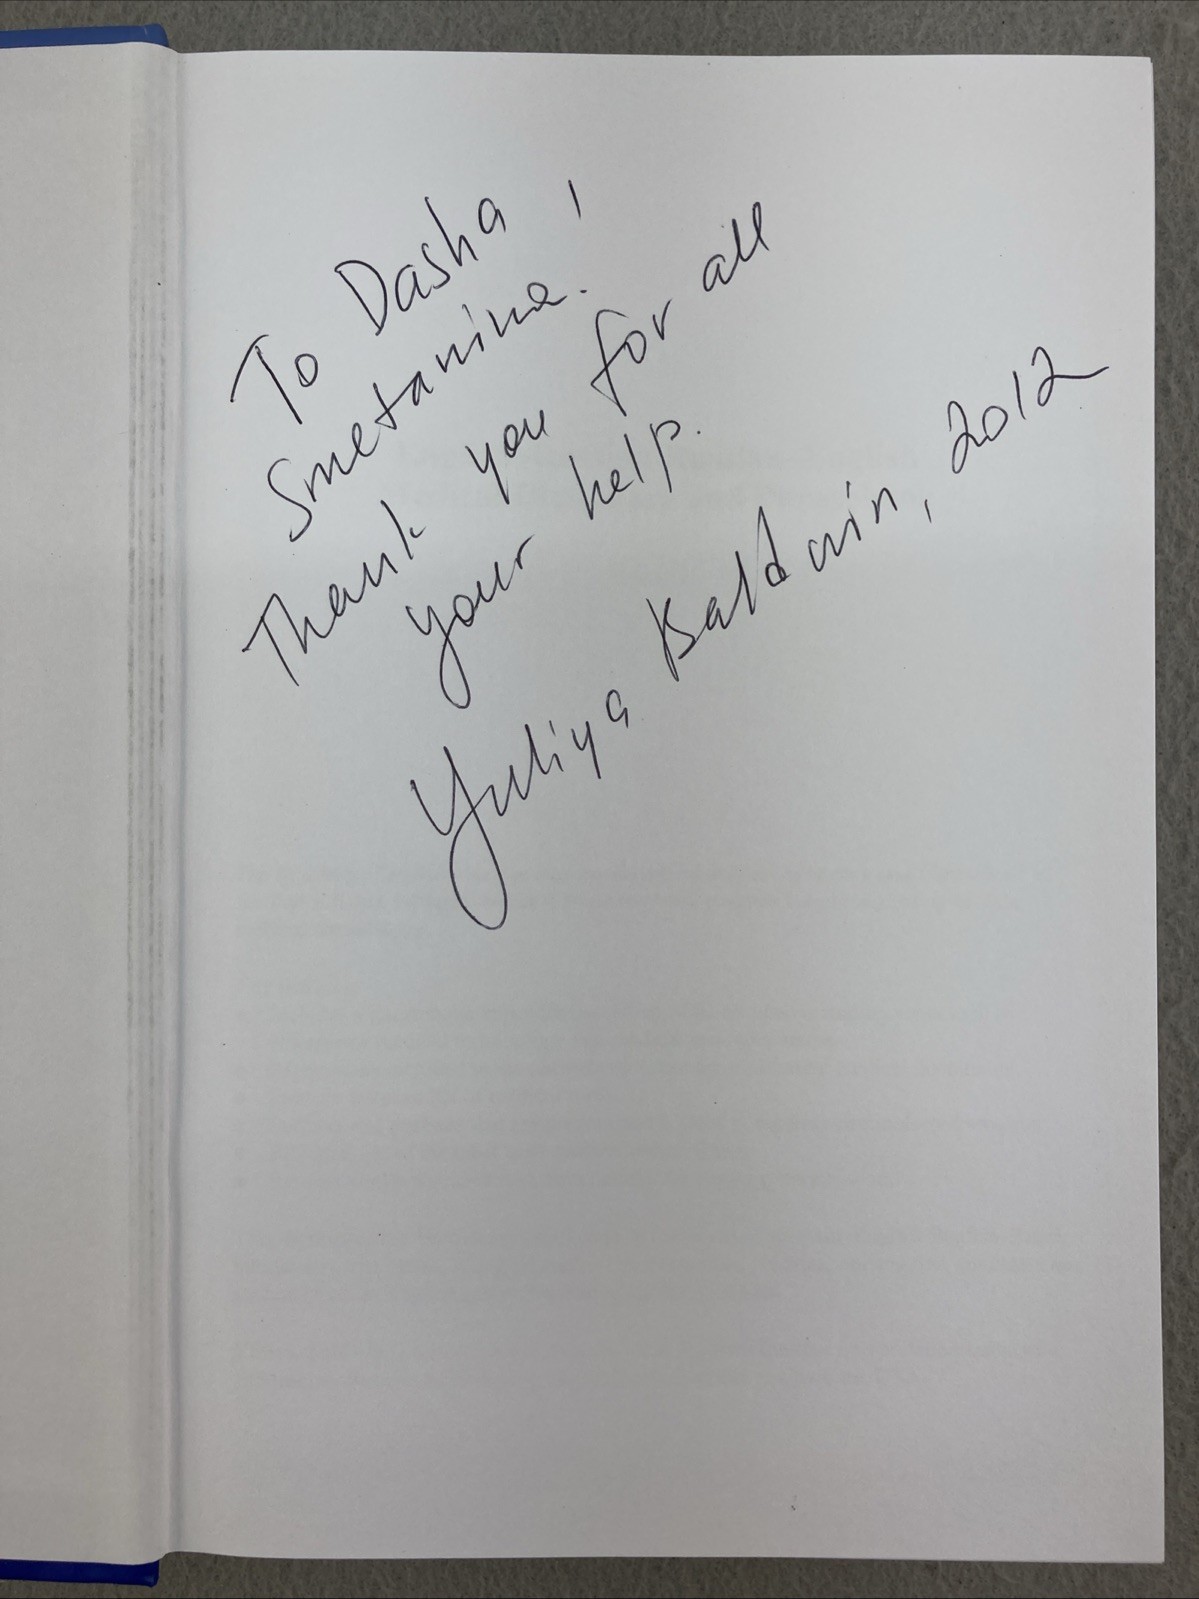 To Dasha
Smetanina.
Thank you for all
your help.
Yuliya Baldwin, 2012